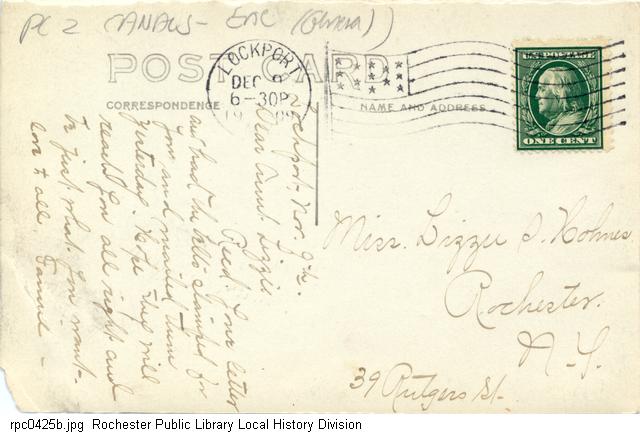 PC 2 CANALS - ERIE (General)
POST CARD
LOCKPORT
DEC 9
6-30P
19 09
U.S. POSTAGE
ONE CENT
CORRESPONDENCE
NAME AND ADDRESS
Lockport, Nov. 9th.
Dear Aunt Lizzie
Rec'd your letter
and had the stamped for
you and mailed them
yesterday. Hope they will
reach you all right and
be just what you want.
love to all. Fannie -
Miss. Lizzie S. Holmes
Rochester.
N.Y.
39 Rutgers St.
rpc0425b.jpg Rochester Public Library Local History Division